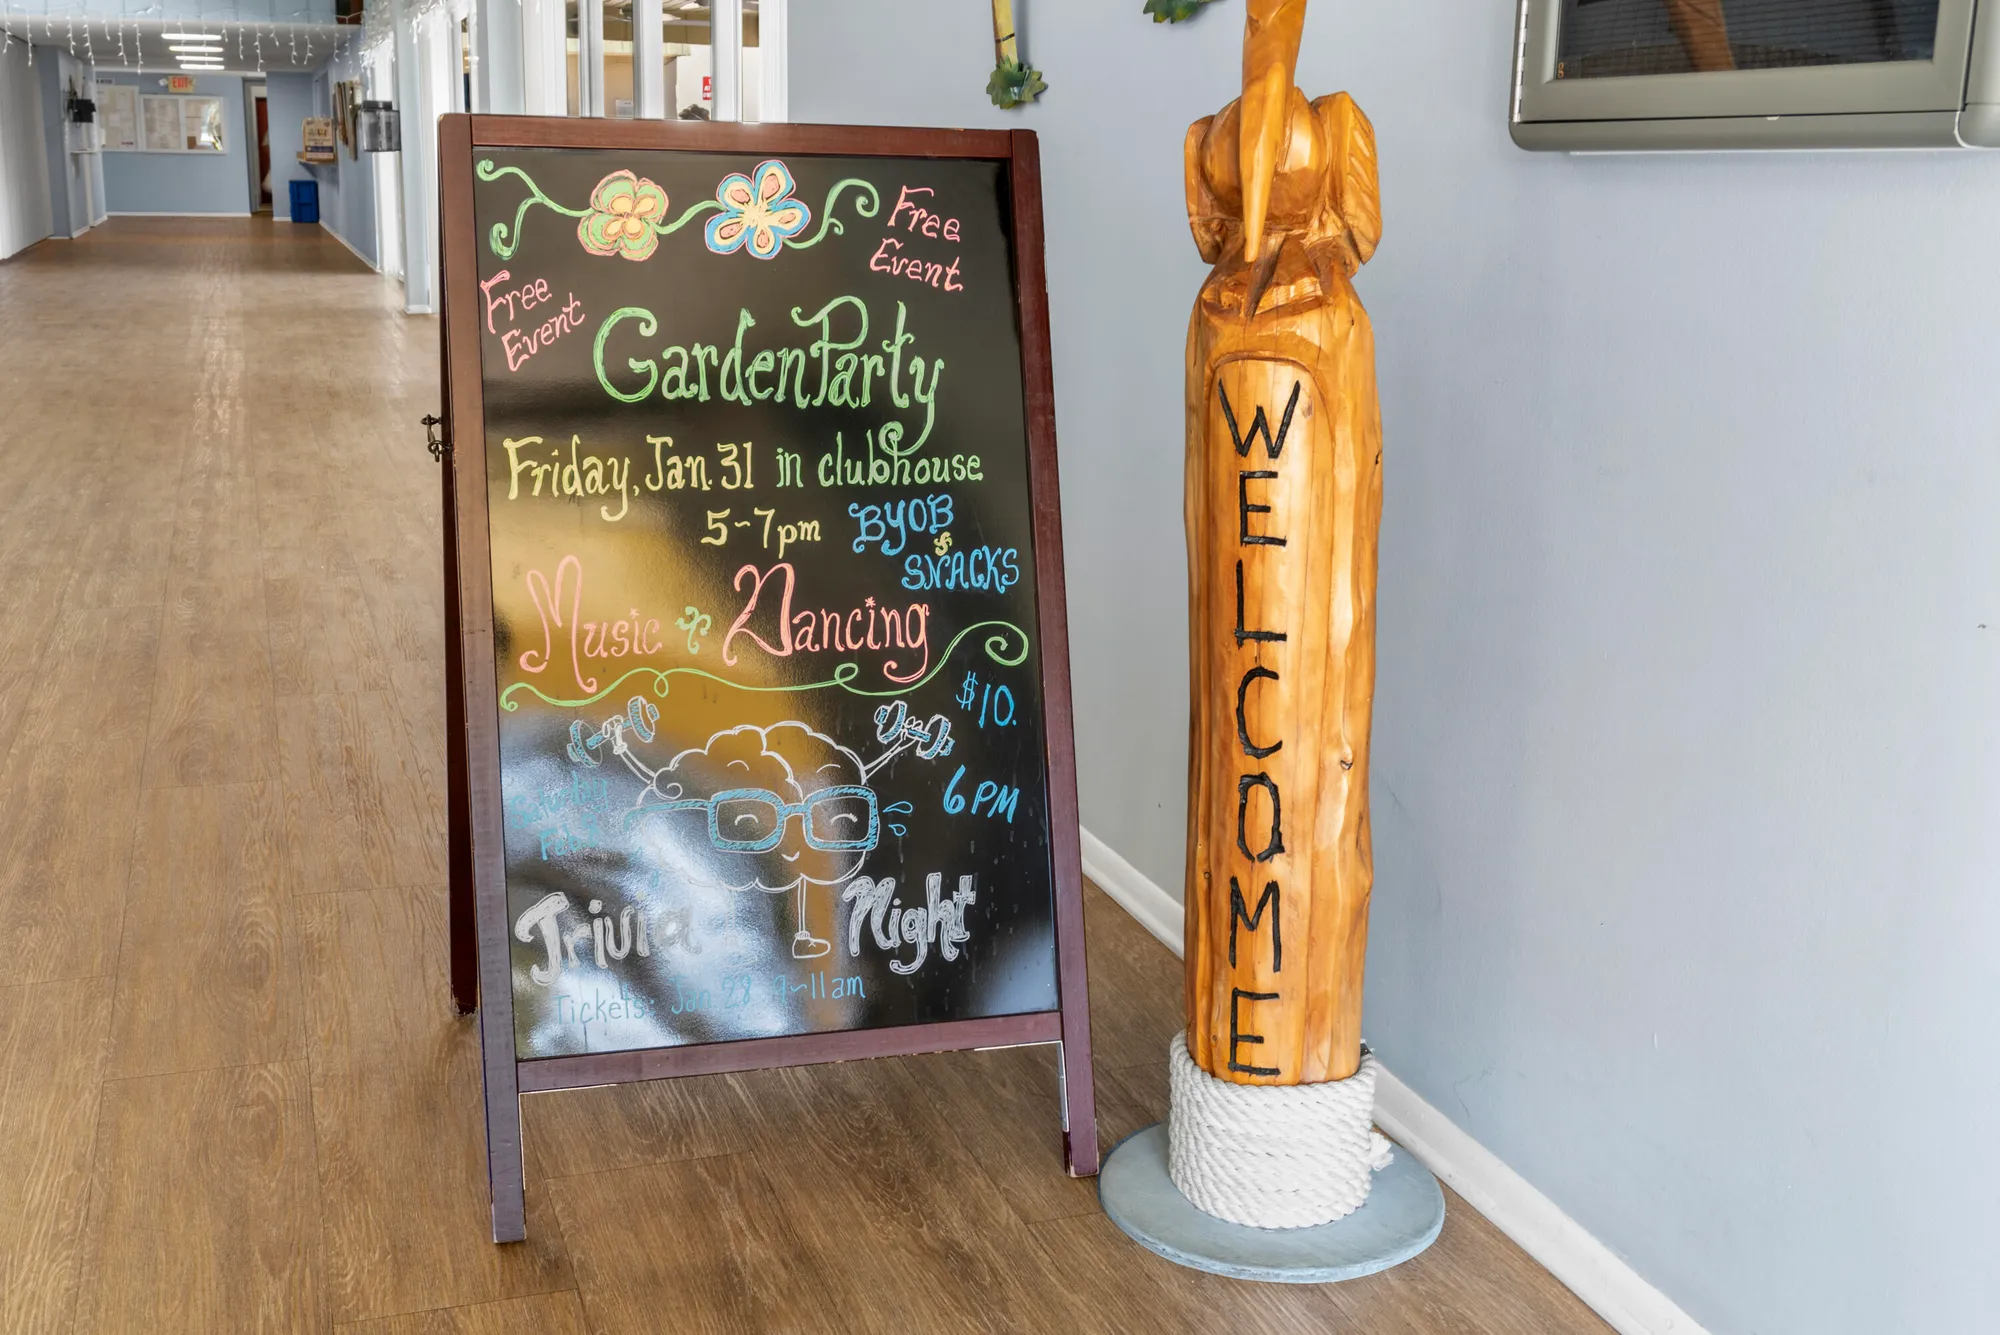 EXIT
Free
Event
Free
Event
Garden Party
Friday, Jan. 31 in clubhouse
5~7pm
BYOB
&
SNACKS
Music & Dancing
$10.
6 PM
Saturday
Feb. 8
Trivia Night
Tickets: Jan 28 9~11am
WELCOME